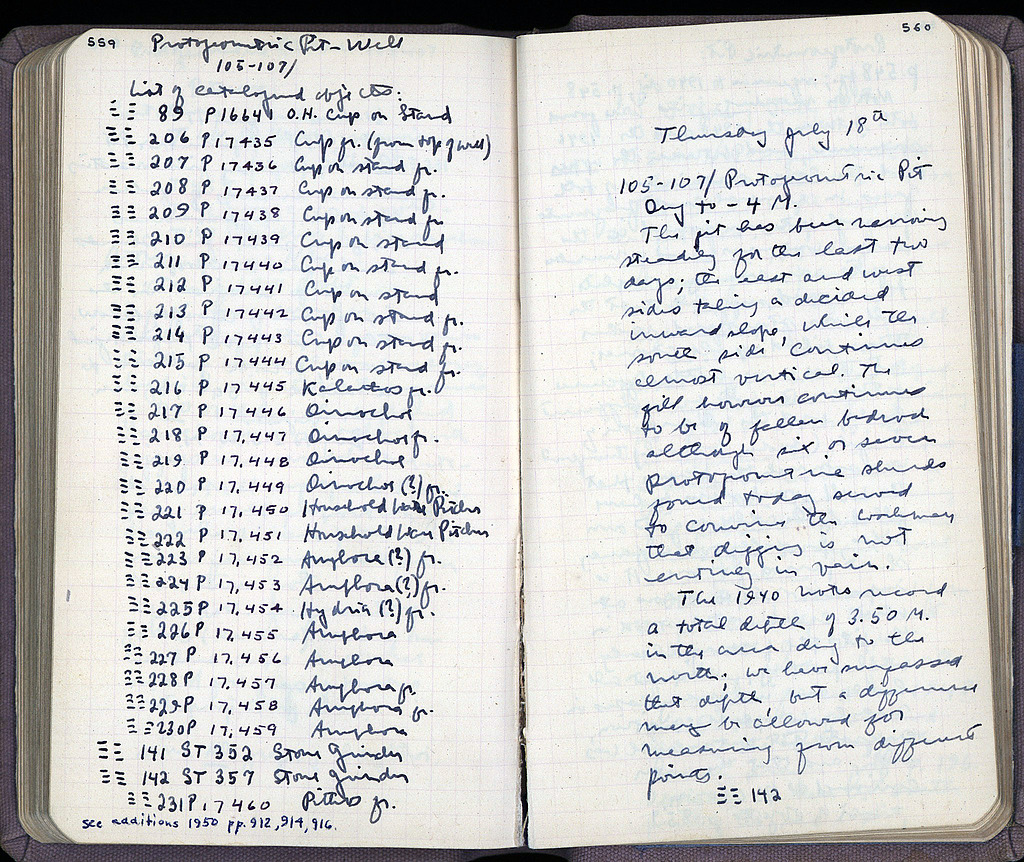 559
Protogeometric Pit-Well
105-107/
List of catalogued objects:
ΞΞ 89 P16641 O.H. Cup on Stand
ΞΞ 206 P 17435 Cup fr. (from top of well)
ΞΞ 207 P 17436 Cup on stand fr.
ΞΞ 208 P 17437 Cup on stand fr.
ΞΞ 209 P 17438 Cup on stand fr
ΞΞ 210 P 17439 Cup on stand
ΞΞ 211 P 17440 Cup on stand fr.
ΞΞ 212 P 17441 Cup on stand
ΞΞ 213 P 17442 Cup on stand fr.
ΞΞ 214 P 17443 Cup on stand fr.
ΞΞ 215 P 17444 Cup on stand fr.
ΞΞ 216 P 17445 Kalathos fr.
ΞΞ 217 P 17,446 Oinochoe
ΞΞ 218 P 17,447 Oinochoe fr.
ΞΞ 219 P 17,448 Oinochoe
ΞΞ 220 P 17,449 Oinochoe (?) fr.
ΞΞ 221 P 17,450 Household Ware Pitcher
ΞΞ 222 P 17,451 Household Ware Pitcher
ΞΞ 223 P 17,452 Amphora (?) fr.
ΞΞ 224 P 17,453 Amphora (?) fr.
ΞΞ 225 P 17,454 Hydria (?) fr.
ΞΞ 226 P 17,455 Amphora
ΞΞ 227 P 17,456 Amphora
ΞΞ 228 P 17,457 Amphora fr.
ΞΞ 229 P 17,458 Amphora fr.
ΞΞ 230 P 17,459 Amphora
ΞΞ 141 ST 352 Stone Grinder
ΞΞ 142 ST 357 Stone grinder
ΞΞ 231 P 17460 Pithos fr.
See additions 1950 pp. 912, 914, 916.
560
Thursday July 18th
105-107/ Protogeometric Pit
Dug to - 4 M.
The pit has been narrowing
steadily for the last two
days; the east and west
sides taking a decided
inward slope, while the
south side continues
almost vertical. The
fill however continues
to be of fallen bedrock
although six or seven
Protogeometric sherds
found today served
to convince the workmen
that digging is not
entirely in vain.
The 1940 notes record
a total depth of 3.50 M.
in the area dug to the
north; we have surpassed
that depth, but a difference
may be allowed for
measuring from different
points.
ΞΞ 142